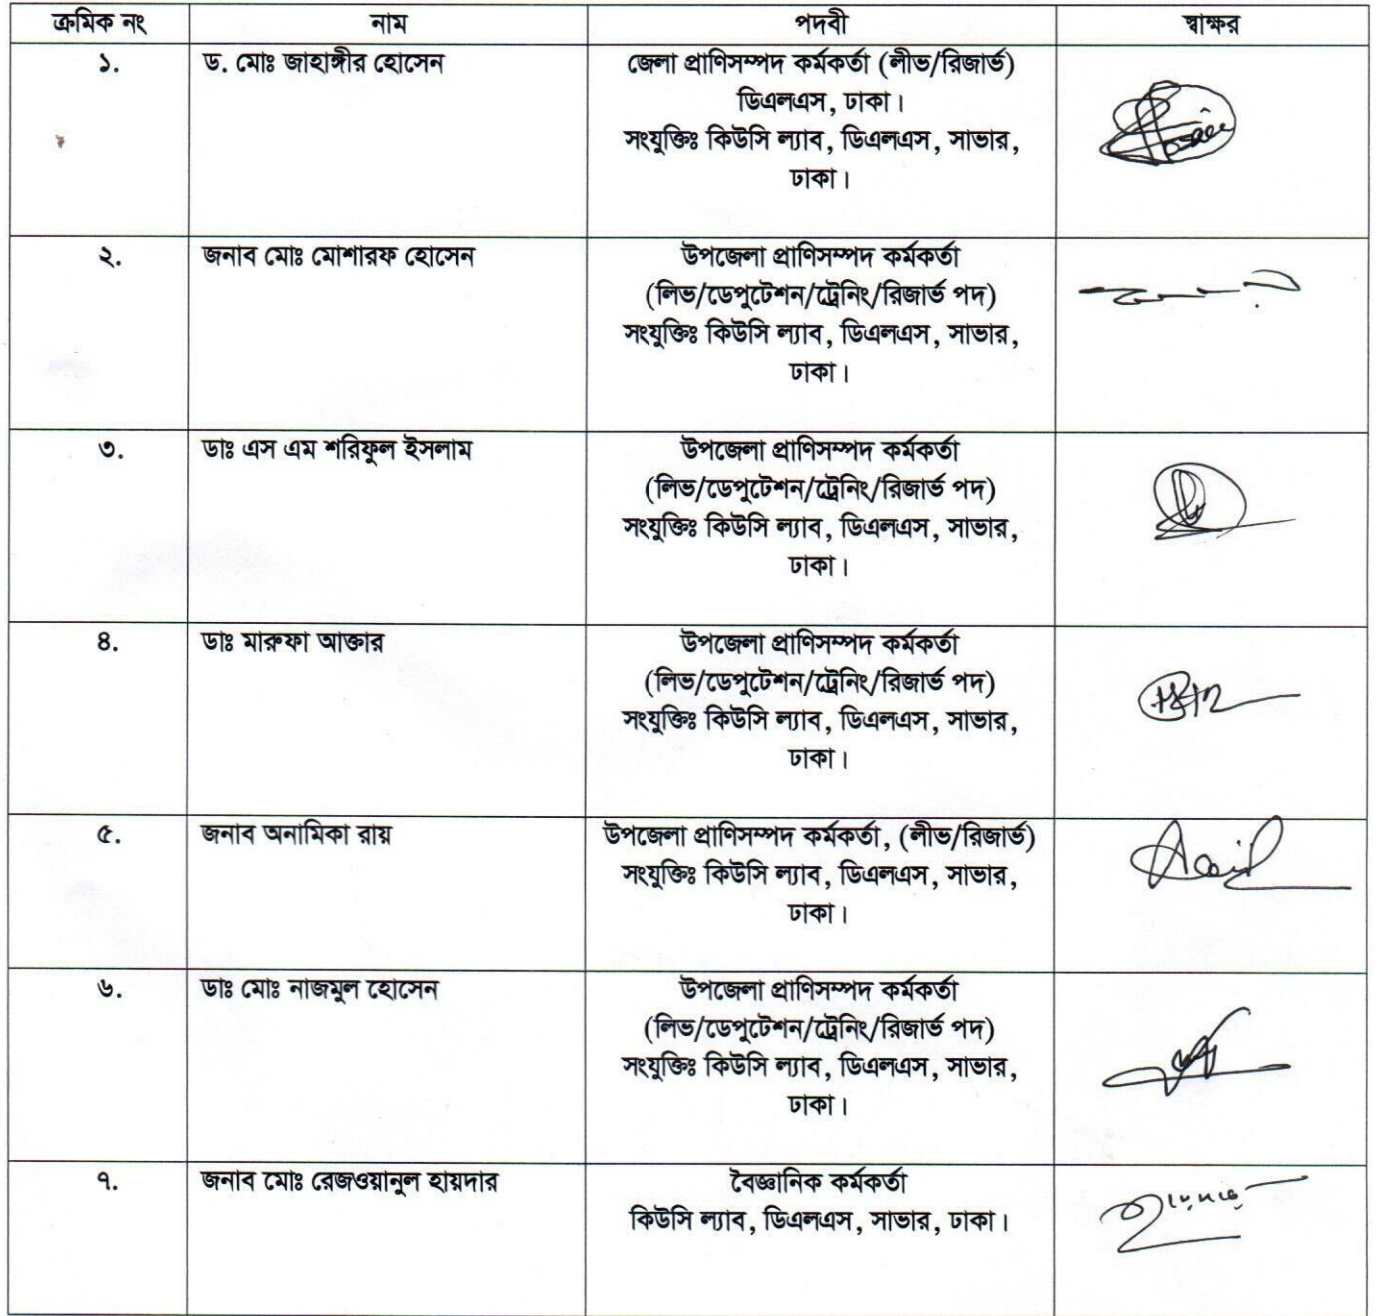 ক্রমিক নং নাম পদবী স্বাক্ষর
১. ড. মোঃ জাহাঙ্গীর হোসেন জেলা প্রাণিসম্পদ কর্মকর্তা (লীভ/রিজার্ভ)
ডিএলএস, ঢাকা।
সংযুক্তিঃ কিউসি ল্যাব, ডিএলএস, সাভার,
ঢাকা।
২. জনাব মোঃ মোশারফ হোসেন উপজেলা প্রাণিসম্পদ কর্মকর্তা
(লিভ/ডেপুটেশন/ট্রেনিং/রিজার্ভ পদ)
সংযুক্তিঃ কিউসি ল্যাব, ডিএলএস, সাভার,
ঢাকা।
৩. ডাঃ এস এম শরিফুল ইসলাম উপজেলা প্রাণিসম্পদ কর্মকর্তা
(লিভ/ডেপুটেশন/ট্রেনিং/রিজার্ভ পদ)
সংযুক্তিঃ কিউসি ল্যাব, ডিএলএস, সাভার,
ঢাকা।
৪. ডাঃ মারুফা আক্তার উপজেলা প্রাণিসম্পদ কর্মকর্তা
(লিভ/ডেপুটেশন/ট্রেনিং/রিজার্ভ পদ)
সংযুক্তিঃ কিউসি ল্যাব, ডিএলএস, সাভার,
ঢাকা।
৫. জনাব অনামিকা রায় উপজেলা প্রাণিসম্পদ কর্মকর্তা, (লীভ/রিজার্ভ)
সংযুক্তিঃ কিউসি ল্যাব, ডিএলএস, সাভার,
ঢাকা।
৬. ডাঃ মোঃ নাজমুল হোসেন উপজেলা প্রাণিসম্পদ কর্মকর্তা
(লিভ/ডেপুটেশন/ট্রেনিং/রিজার্ভ পদ)
সংযুক্তিঃ কিউসি ল্যাব, ডিএলএস, সাভার,
ঢাকা।
৭. জনাব মোঃ রেজওয়ানুল হায়দার বৈজ্ঞানিক কর্মকর্তা
কিউসি ল্যাব, ডিএলএস, সাভার, ঢাকা।